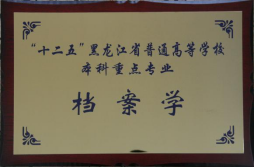 “十二五”黑龙江省普通高等学校
本科重点专业
档案学